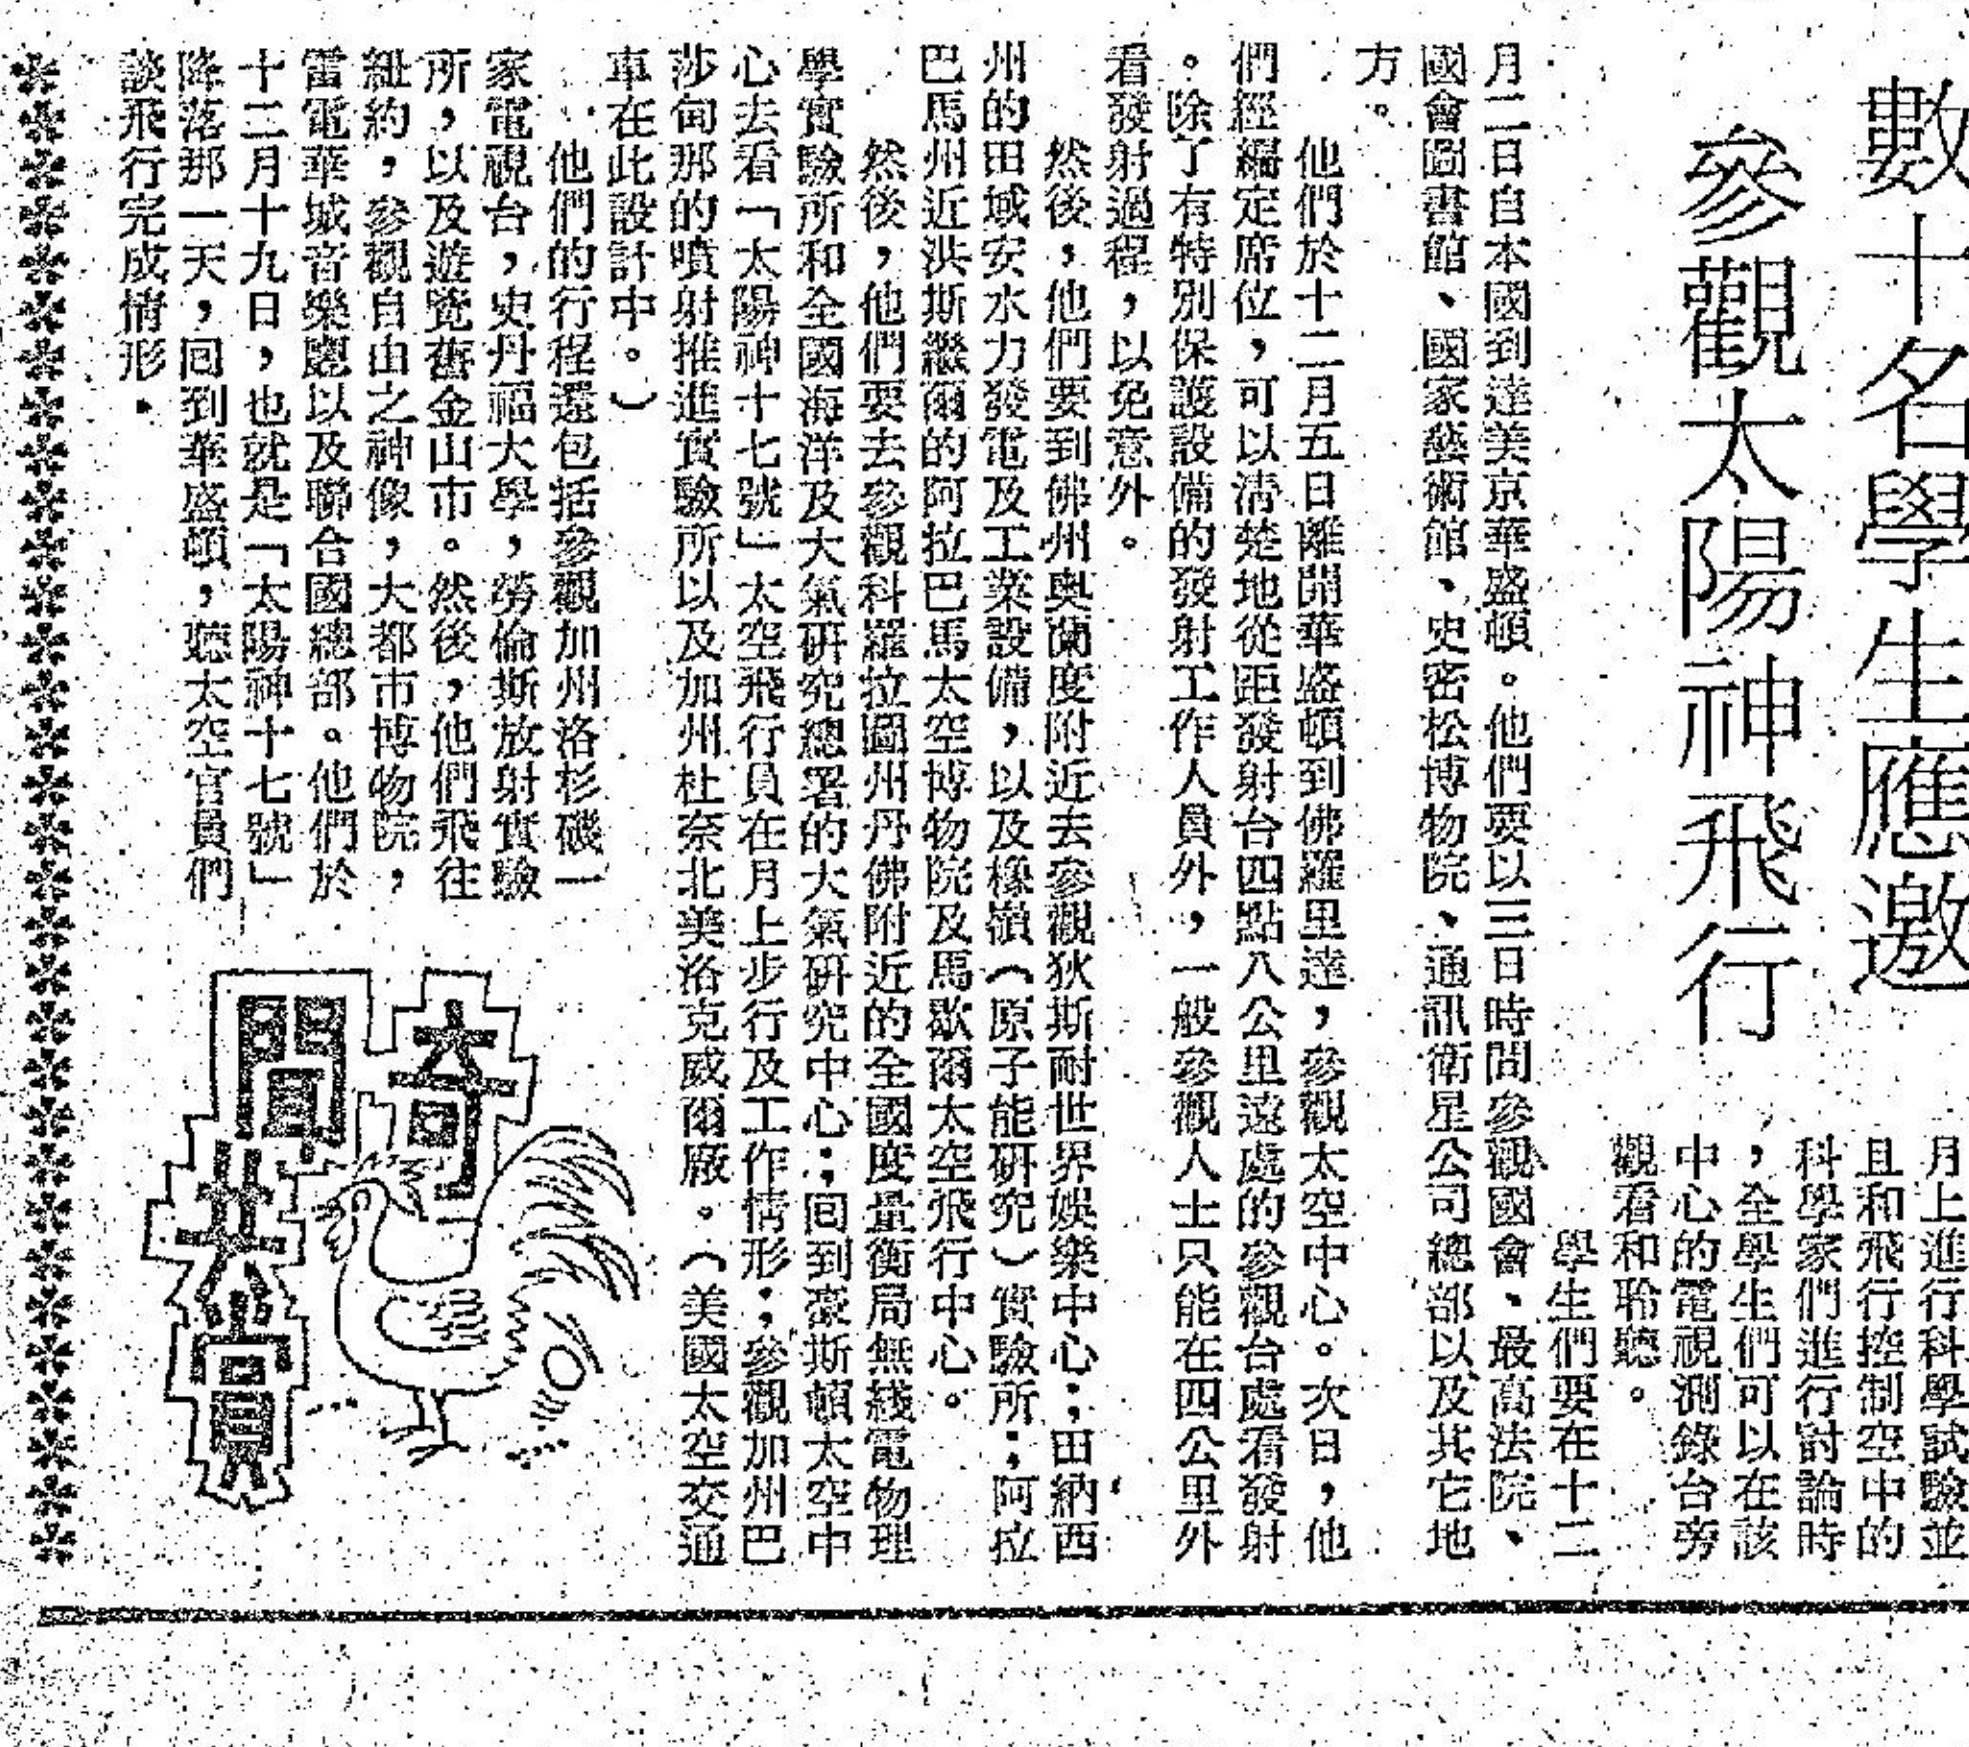 數十名學生應邀
參觀太陽神飛行
月上進行科學試驗並
且和飛行控制空中的
科學家們進行討論時
，全學生們可以在該
中心的電視測錄台旁
觀看和聆聽。
學生們要在十二
月二日自本國到達美京華盛頓。他們要以三日時間參觀國會、最高法院、
國會圖書館、國家藝術館、史密松博物院、通訊衛星公司總部以及其它地
方。
他們於十二月五日離開華盛頓到佛羅里達，參觀太空中心。次日，他
們經編定席位，可以清楚地從距發射台四點八公里遠處的參觀台處看發射
。除了有特別保護設備的發射工作人員外，一般參觀人士只能在四公里外
看發射過程，以免意外。
然後，他們要到佛州奧蘭度附近去參觀狄斯耐世界娛樂中心；田納西
州的田域安水力發電及工業設備，以及橡嶺（原子能研究）實驗所；阿拉
巴馬州近洪斯繼爾的阿拉巴馬太空博物院及馬歇爾太空飛行中心。
然後，他們要去參觀科羅拉圖州丹佛附近的全國度量衡局無綫電物理
學實驗所和全國海洋及大氣研究總署的大氣研究中心；回到豪斯頓太空中
心去看「太陽神十七號」太空飛行員在月上步行及工作情形；參觀加州巴
莎甸那的噴射推進實驗所以及加州杜奈北美洛克威爾廠。（美國太空交通
車在此設計中。）
他們的行程還包括參觀加州洛杉磯一
家電視台，史丹福大學，勞倫斯放射實驗
所，以及遊覽舊金山市。然後，他們飛往
紐約，參觀自由之神像，大都市博物院，
雷電華城音樂廳以及聯合國總部。他們於
十二月十九日，也就是「太陽神十七號」
降落那一天，回到華盛頓，聽太空官員們
談飛行完成情形．
奇
聞
共
賞